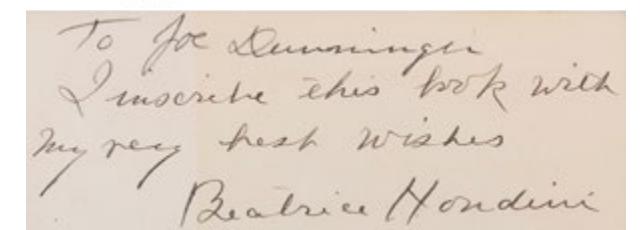 To Joe Dunninger
I inscribe this book with
my very best wishes
Beatrice Houdini